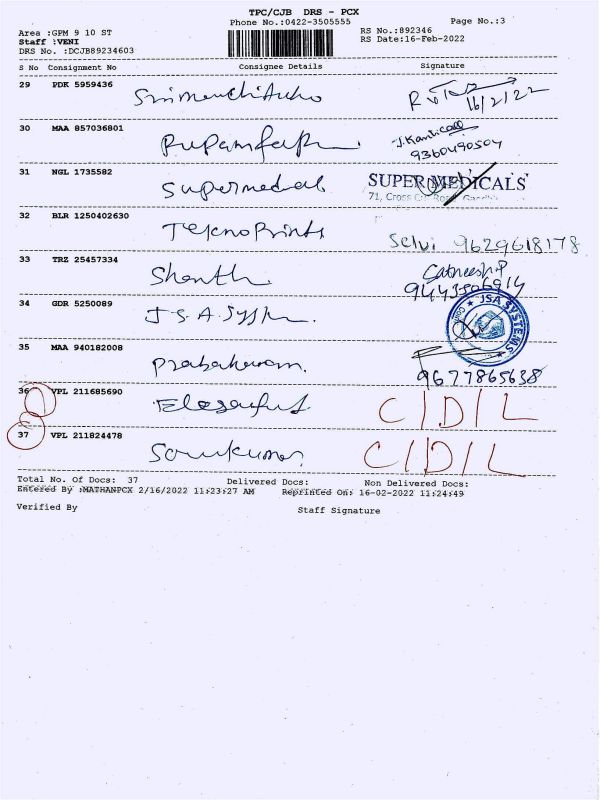 TPC/CJB DRS - PCX
Phone No.:0422-3505555
Page No.:3
Area :GPM 9 10 ST
RS No.:892346
Staff :VENI
RS Date:16-Feb-2022
DRS No. :DCJB89234603
S No Consignment No Consignee Details Signature
29 PDK 5959436
16/2/22
30 MAA 857036801
9360490504
31 NGL 1735582 Supermedical
SUPER MEDICALS
71, Cross Cut Road,
32 BLR 1250402630 Tekno Prints
Selvi 9629618178
33 TRZ 25457334
Shanthi
34 GDR 5250089
J.S.A. System
JSA SYSTEMS
35 MAA 940182008
Prabakaran.
9677865638
36 VPL 211685690
C/D/L
37 VPL 211824478
C/D/L
Total No. Of Docs: 37 Delivered Docs: Non Delivered Docs:
Entered By :MATHANPCX 2/16/2022 11:23:27 AM Reprinted On: 16-02-2022 11:24:49
Verified By Staff Signature